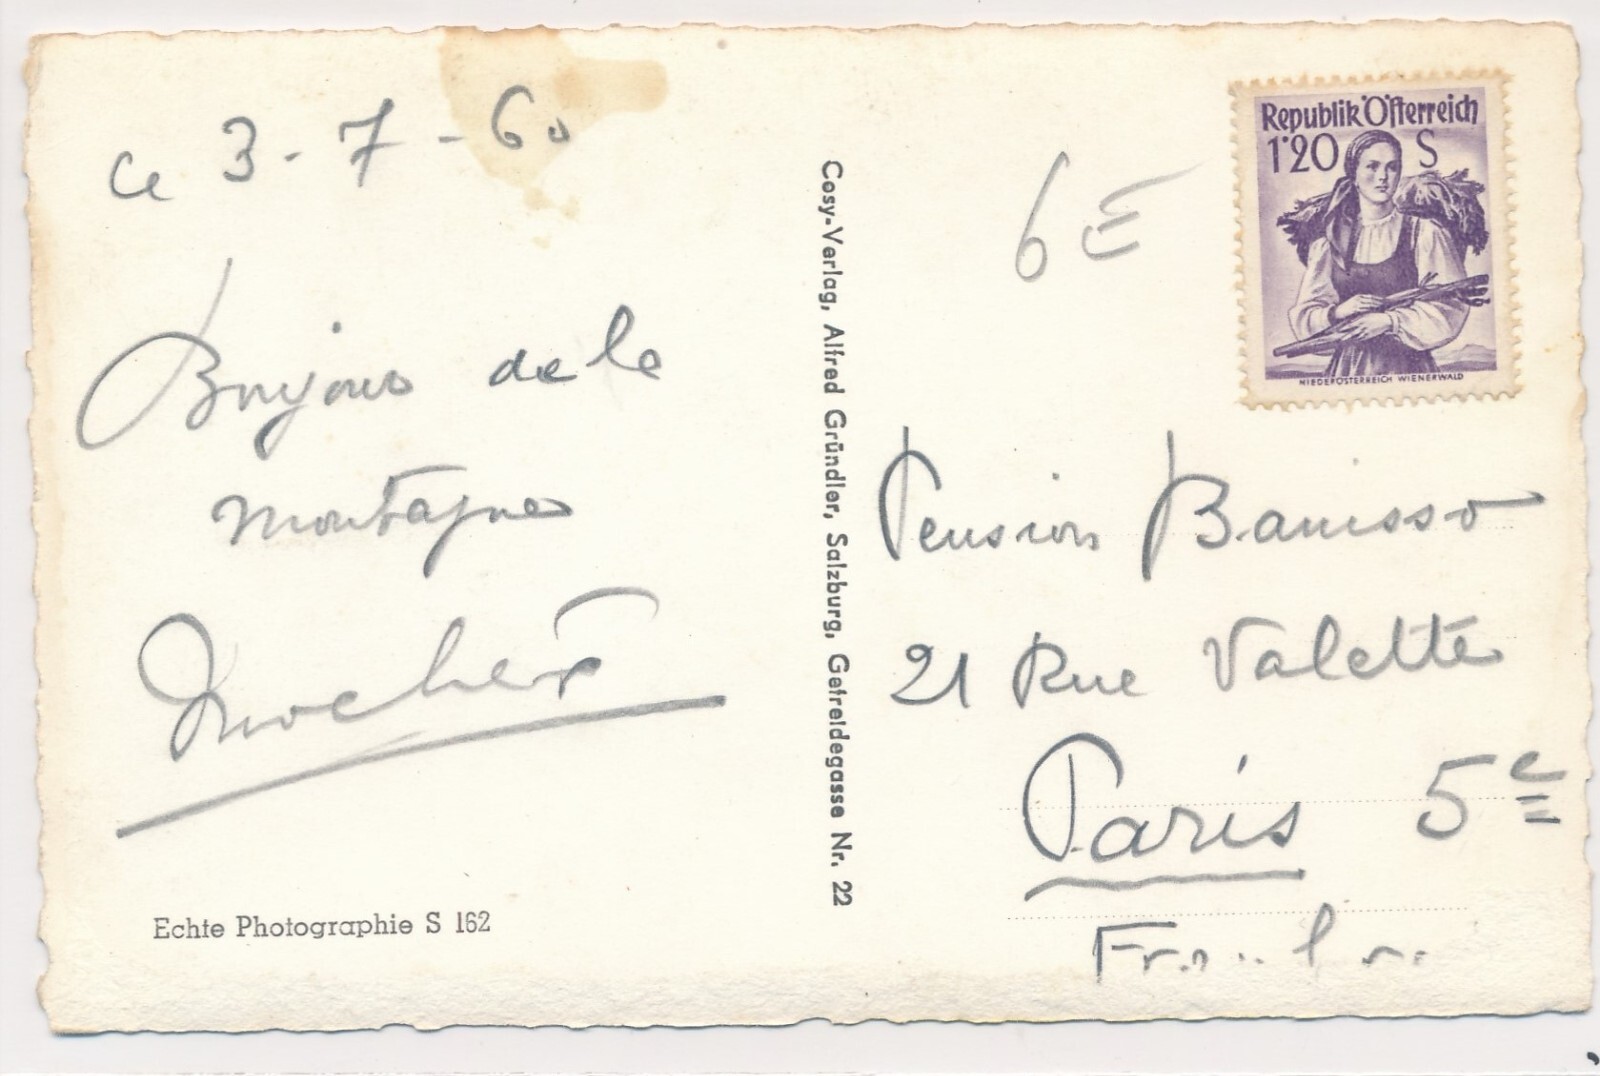 ce 3-7-60
Bonjour de la
montagne
Echte Photographie S 162
Cosy-Verlag, Alfred Gründler, Salzburg, Getreidegasse Nr. 22
6E
Republik Österreich
1'20 S
NIEDERÖSTERREICH WIENERWALD
Pension
21 Rue Valette
Paris 5e